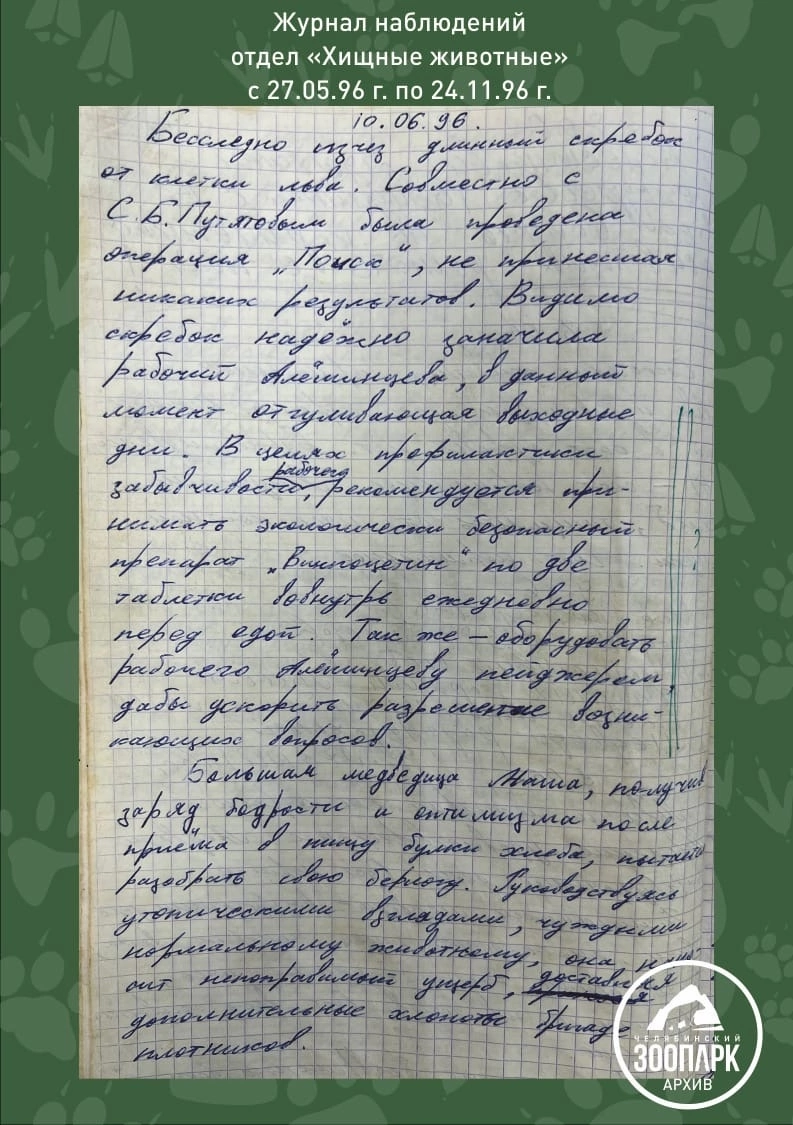 Журнал наблюдений
отдел «Хищные животные»
с 27.05.96 г. по 24.11.96 г.
10.06.96.
Бесследно изчез длинный скребок
от клетки льва. Совместно с
С.Б.Путятовым была проведена
операция „Поиск“, не принесшая
никаких результатов. Видимо
скребок надёжно заначила
рабочий Алёшинцева, в данный
момент отгуливающая выходные
дни. В целях профилактики
рабочего
забывчивости, рекомендуется при-
нимать экологически безопасный
препарат „Винпоцетин“ по две
таблетки вовнутрь ежедневно
перед едой. Так же – оборудовать
рабочего Алёшинцеву пейджером,
дабы ускорить разрешение возни-
кающих вопросов.
Большая медведица Маша, получив
заряд бодрости и оптимизма после
приёма в пищу булки хлеба, пытается
разобрать свою берлогу. Руководствуясь
утопическими взглядами, чуждыми
нормальному животному, она
непоправимый ущерб, доставляя
дополнительные хлопоты бригаде
плотников.
ЧЕЛЯБИНСКИЙ
ЗООПАРК
АРХИВ